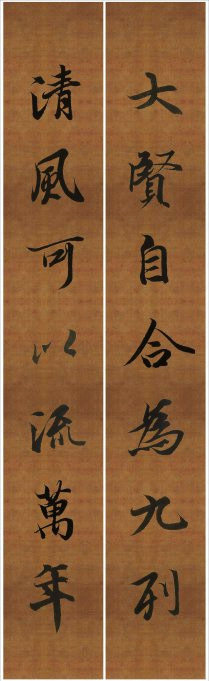 大賢自合為九列
清風可以流萬年